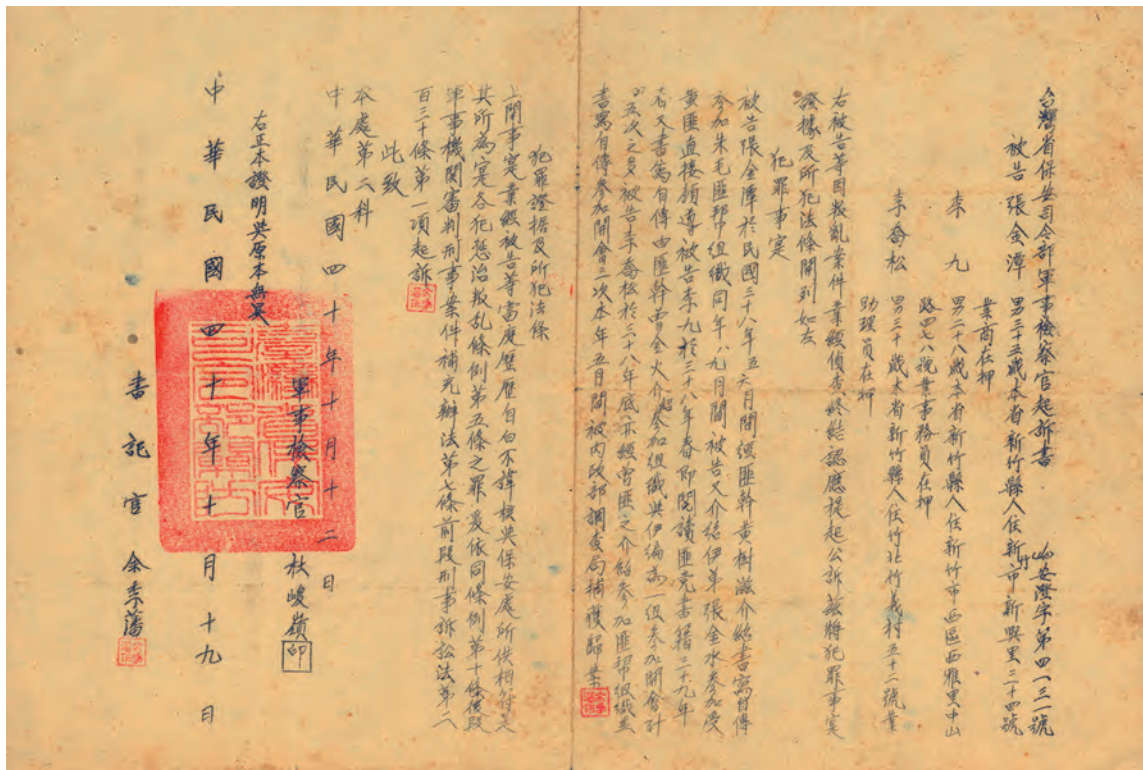 台灣省保安司令部軍事檢察官起訴書
安澄字第四一三一號
被告 張金潭 男三十五歲本省新竹縣人住新竹市新興里三十四號
業商在押
李九 男二十八歲本省新竹縣人住新竹市西區西雅里中山
路四七八號業事務員在押
李喬松 男三十歲本省新竹縣人住竹北竹義村五十二號業
助理員在押
右被告等因叛亂案件業經偵查終結認應提起公訴茲將犯罪事實
證據及所犯法條開列如左
犯罪事実
被告張金潭於民國三十八年五六月間經匪幹黃樹滋介紹書寫自傳
參加朱毛匪幫組織同年八九月間被告又介紹伊弟張金水參加受
黃匪直接領導被告李九於三十八年春即閱讀匪党書籍三十九年
春又書寫自傳由匪幹曾金火介紹參加組織與伊編為一組參加開會計
五次之多被告李喬松於三十八年底亦經曾匪之介紹參加匪幫組織並
書寫自傳參加開會二次本年五月間被內政部調查局捕獲歸案
犯罪證據及所犯法條
上開事実業經被告等當庭歷歷自白不諱核與保安處所供相符是
其所為実各犯惩治叛乱條例第五條之罪爰依同條例第十條後段
軍事機関審判刑事案件補充辦法第七條前段刑事訴訟法第二
百三十條第一項起訴
此致
本處第二科
中華民國四十年十月十二日
軍事檢察官 杜峻嶺 印
右正本證明與原本無異
中華民國四十年十月十九日
書記官 余季藩